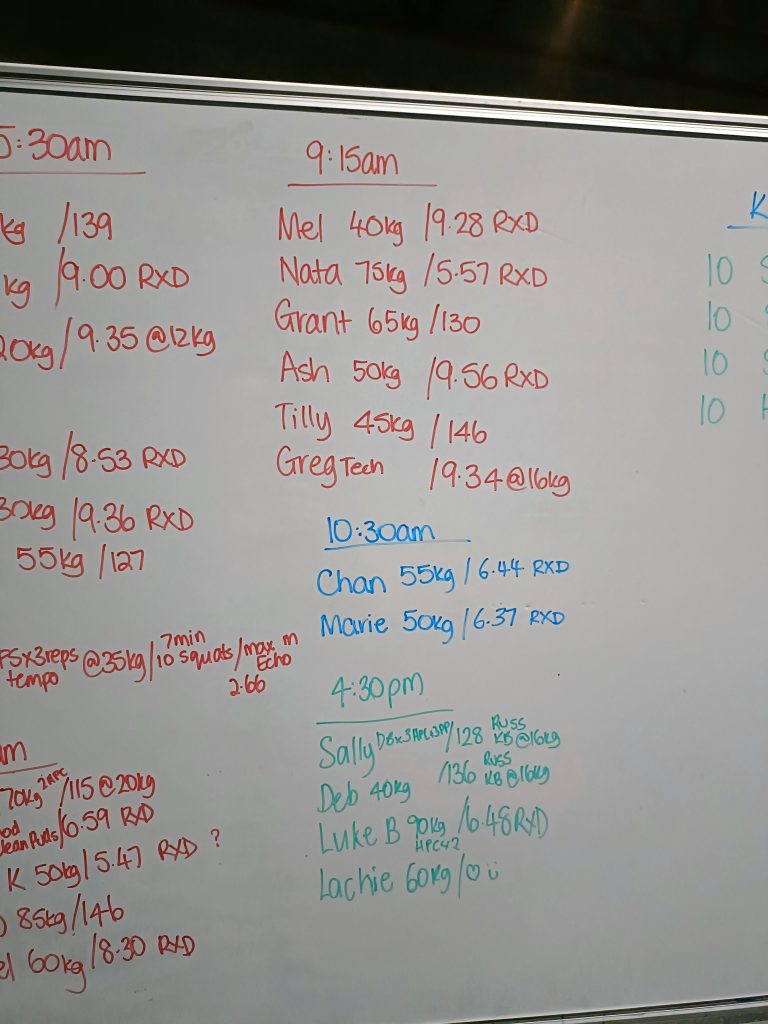 5:30am
kg /139
kg /9.00 RXD
20kg / 9.35 @12kg
30kg /8.53 RXD
30kg /9.36 RXD
55kg /127
FS x 3reps @35kg / 7min 10 squats / max m Echo
tempo 2.66
am
70kg 2HPC /115 @20kg
Clean Pulls /6.59 RXD
K 50kg / 5.47 RXD ?
85kg /146
el 60kg /8.30 RXD
9:15am
Mel 40kg /9.28 RXD
Nata 75kg /5.57 RXD
Grant 65kg /130
Ash 50kg /9.56 RXD
Tilly 45kg /146
Greg Tech /9.34 @16kg
10:30am
Chan 55kg /6.44 RXD
Marie 50kg /6.37 RXD
4:30pm
Sally /128 RUSS KB @16kg
Deb 40kg /136 RUSS KB @16kg
Luke B 90kg /6.48 RXD
HPC x 2
Lachie 60kg /
K
10 S
10 S
10 S
10 H